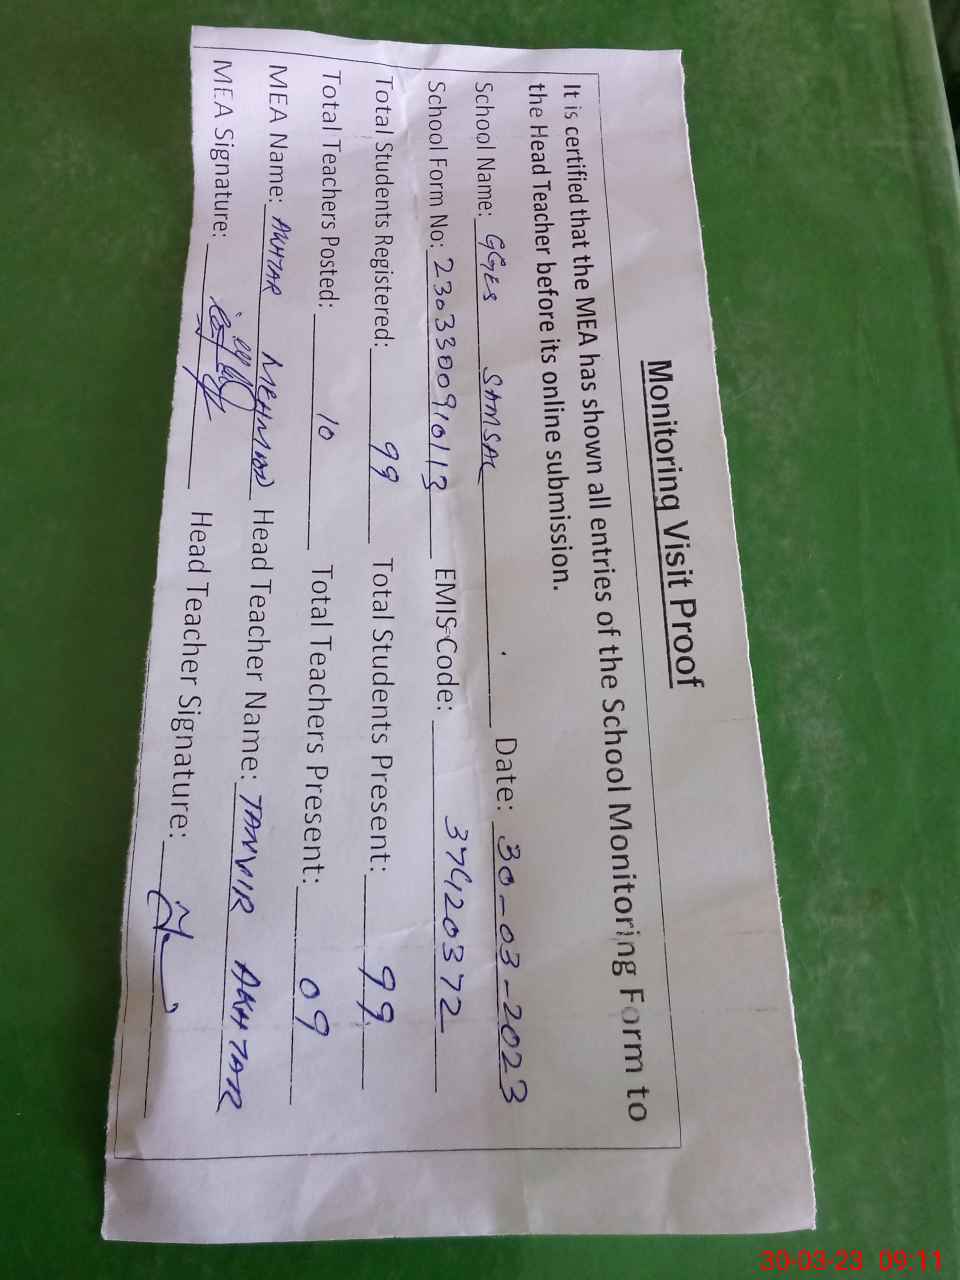 Monitoring Visit Proof
It is certified that the MEA has shown all entries of the School Monitoring Form to
the Head Teacher before its online submission.
School Name: GGES SAMSAL Date: 30-03-2023
School Form No: 2303300910113 EMIS Code: 37420372
Total Students Registered: 99 Total Students Present: 99
Total Teachers Posted: 10 Total Teachers Present: 09
MEA Name: AKHTAR MEHMOOD Head Teacher Name: TANVIR AKHTAR
MEA Signature: Head Teacher Signature:
30-03-23 09:11